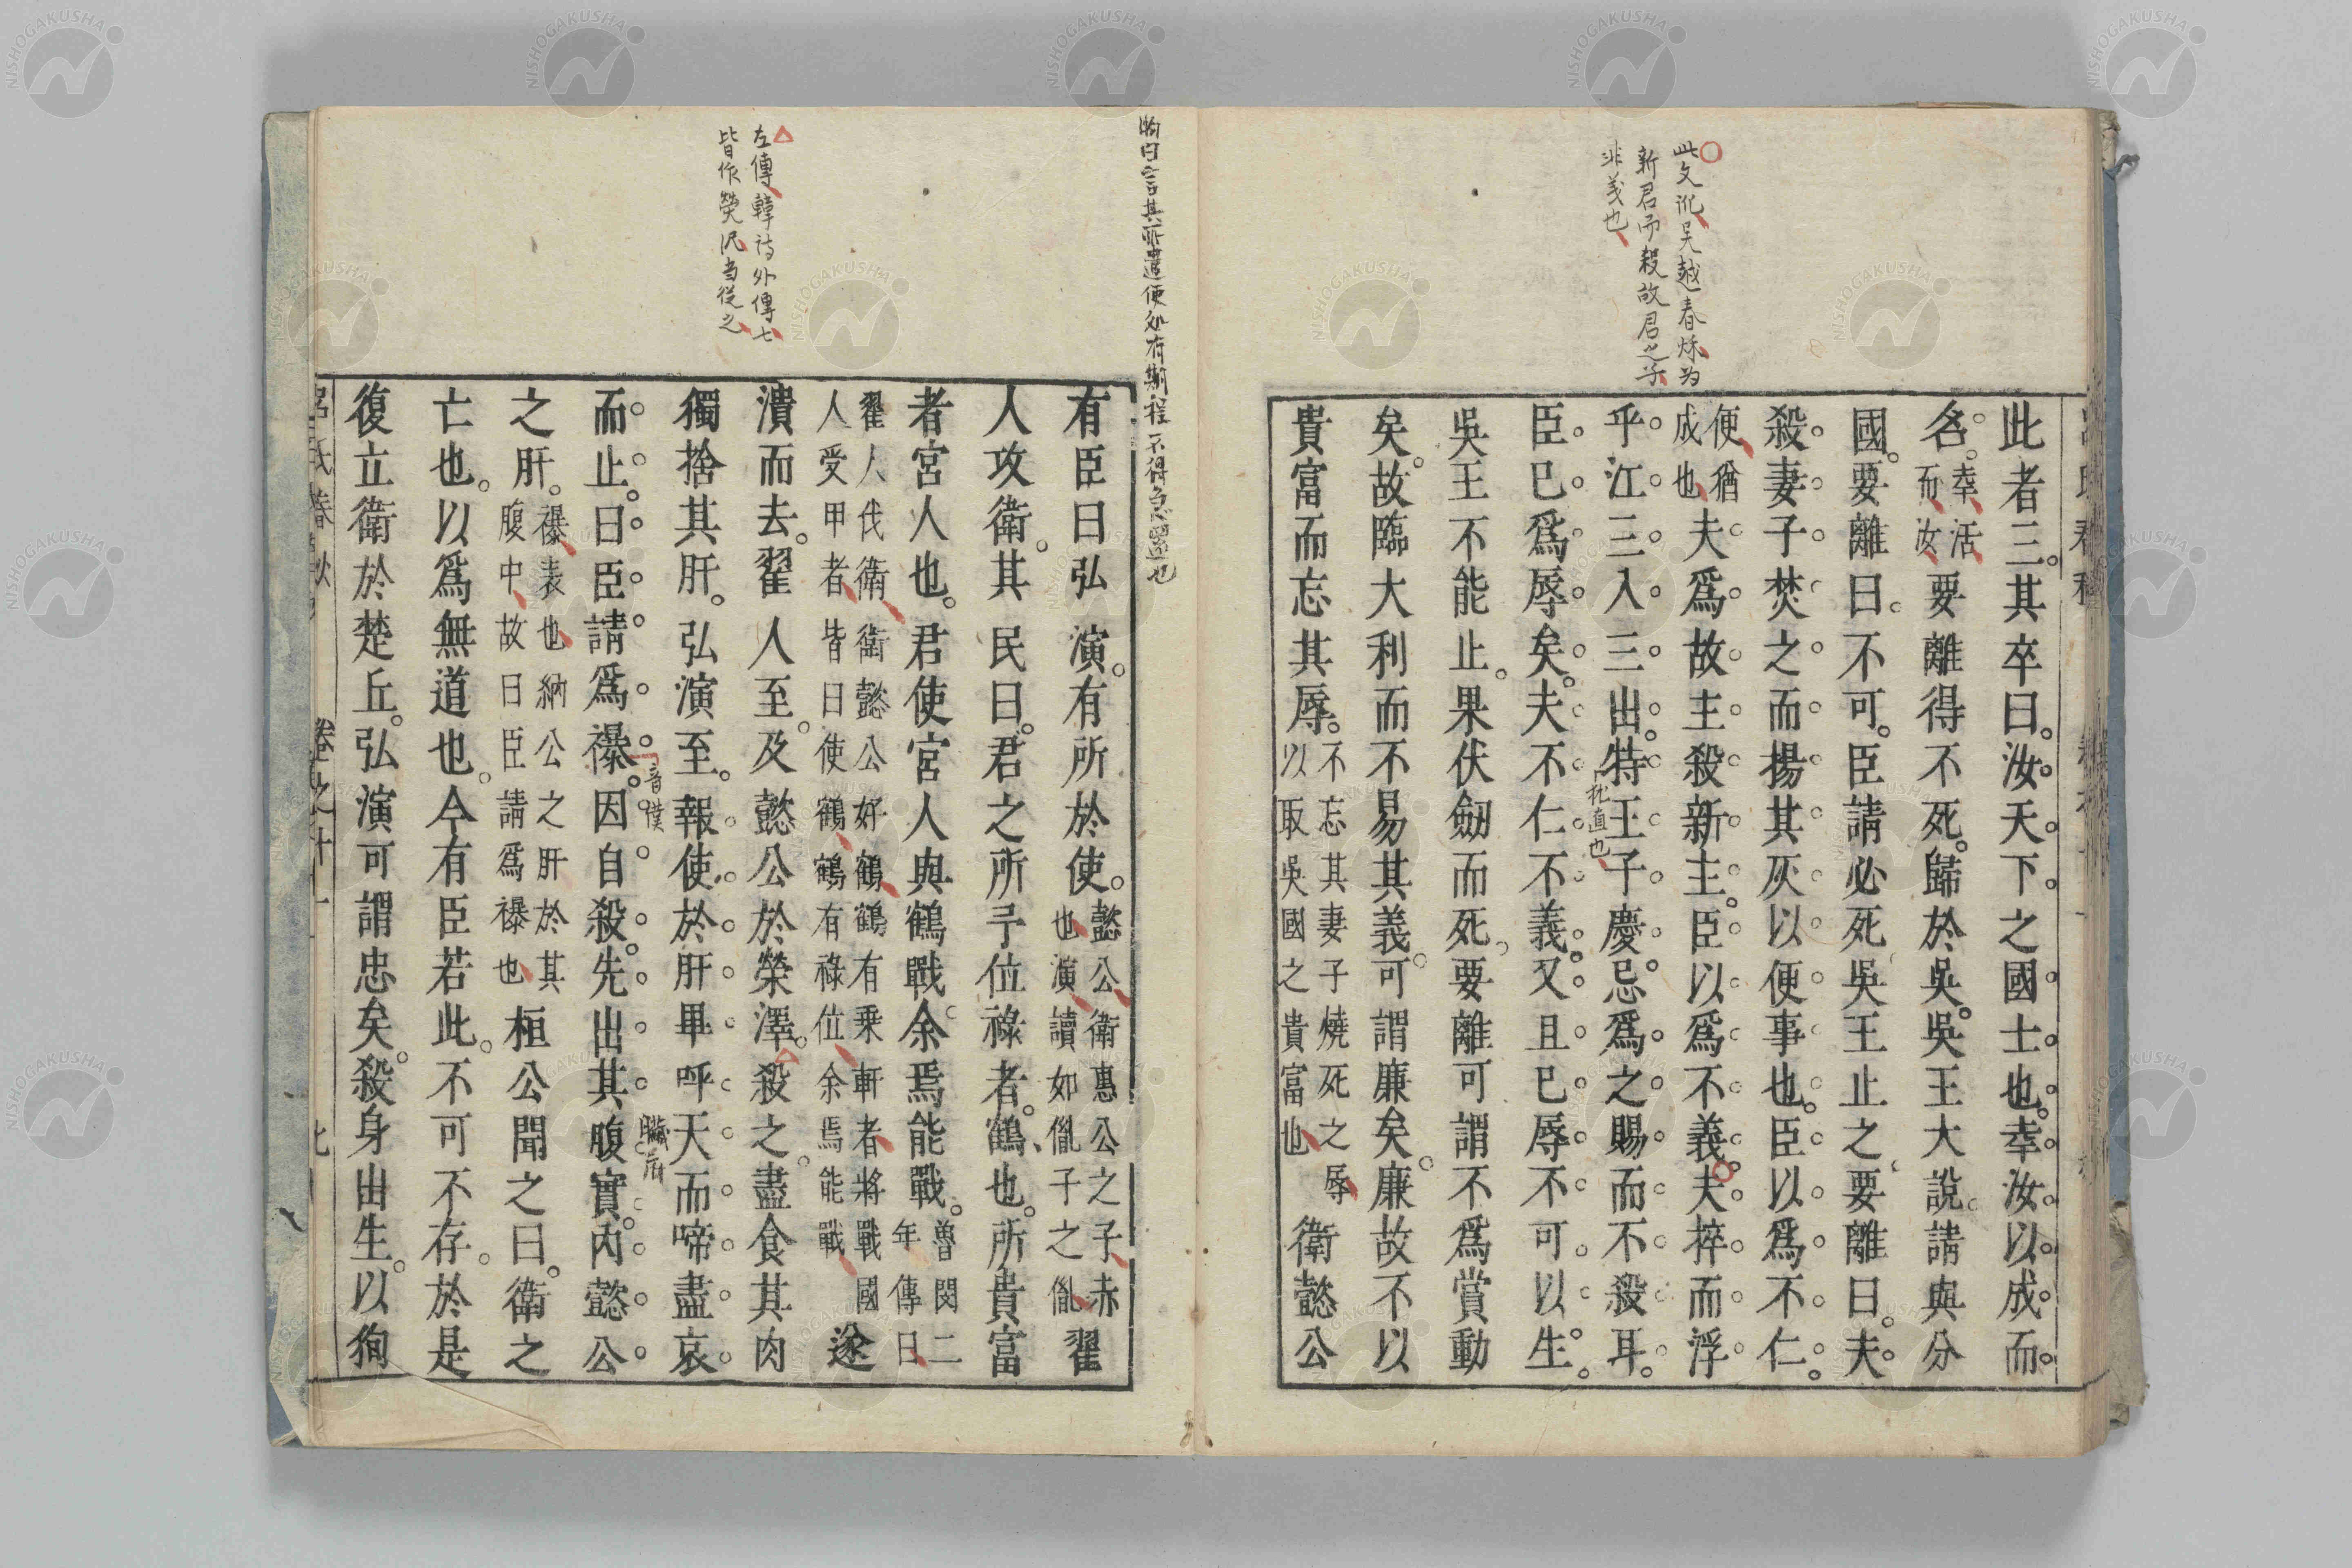 此文訛吳越春秋為
新君而殺故君之子
非義也
此者三。其卒曰。汝天下之國士也。幸汝以成而
名。幸活而汝要離得不死。歸於吳。吳王大說。請與分
國。要離曰。不可。臣請必死吳王止之要離曰。夫
殺妻子焚之而揚其灰以便事也。臣以爲不仁。
便猶成也夫爲故主殺新主。臣以爲不義。夫捽而浮
乎江。三入三出。特王子慶忌爲之賜而不殺耳。
臣已爲辱矣。夫不仁不義。又且已辱不可以生。
吳王不能止。果伏劒而死。要離可謂不爲賞動
矣。故臨大利而不易其義。可謂廉矣。廉故不以
貴富而忘其辱。不忘其妻子燒死之辱以取吳國之貴富也衛懿公
有臣曰弘演。有所於使。懿公衛惠公之子赤也演讀如胤子之胤翟
人攻衛。其民曰。君之所予位祿者。鶴也。所貴富
者宮人也。君使宮人與鶴戰。余焉能戰。魯閔二年傳曰
翟人伐衛衛懿公好鶴鶴有乗軒者將戰國人受甲者皆曰使鶴鶴有祿位余焉能戰遂
潰而去。翟人至。及懿公於榮澤。殺之。盡食其肉
獨捨其肝。弘演至。報使於肝畢呼天而啼盡哀
而止。曰。臣請爲襮。因自殺。先出其腹實。內懿公
之肝。襮表也納公之肝於其腹中故曰臣請爲襮也桓公聞之曰。衛之
亡也。以爲無道也。今有臣若此。不可不存。於是
復立衛於楚丘。弘演可謂忠矣。殺身出生。以徇
左傳韓詩外傳七
皆作熒沢当從之
音僕
臟府
呂氏春秋 卷之十一